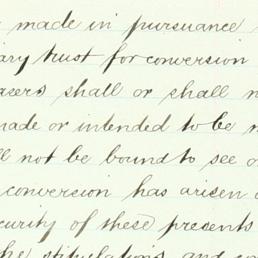 made in pursuance
ary trust for conversion
asers shall or shall n
nade or intended to be n
ll not be bound to see o
conversion has arisen o
curity of these presents
he stipulations and co